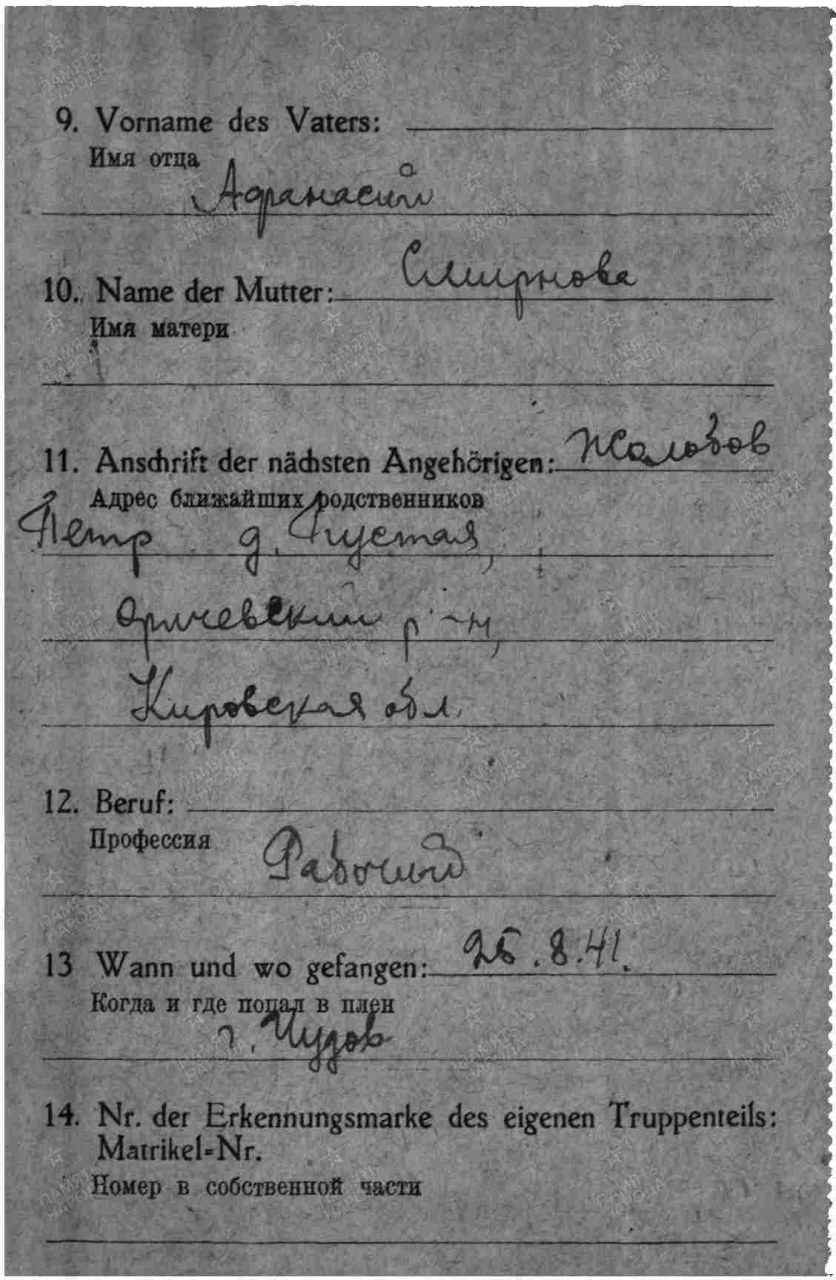 9. Vorname des Vaters:
Имя отца
Афанасий
10. Name der Mutter: Смирнова
Имя матери
11. Anschrift der nächsten Angehörigen: Жолобов
Адрес ближайших родственников
Петр д. Пустая,
Оричевский р-н,
Кировская обл.
12. Beruf:
Профессия
Рабочий
13 Wann und wo gefangen: 25.8.41.
Когда и где попал в плен
г. Чудов
14. Nr. der Erkennungsmarke des eigenen Truppenteils:
Matrikel=Nr.
Номер в собственной части